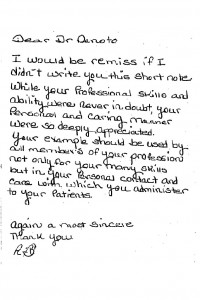 Dear Dr Denoto
I would be remiss if I
didn't write you this short note
While your Professional skills and
ability were never in doubt, your
Personal and caring manner
were so deeply appreciated.
Your example should be used by
all member's of your profession
not only for your many skills
but in your Personal contact and
care with which you administer
to your Patients.
Again a most sincere
Thank you